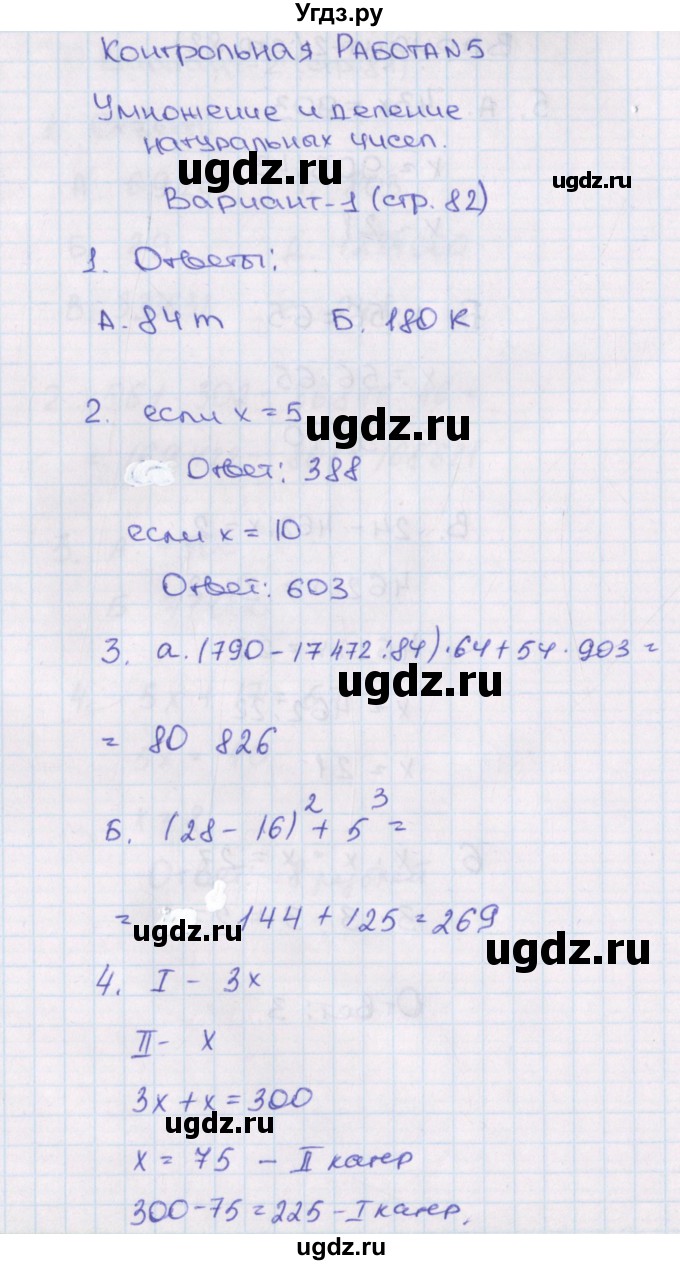 Угдз.ру
Контрольная РАБОТА N5
Умножение и деление
натуральных чисел.
ugdz.ru
ugdz.ru
Вариант-1 (стр. 82)
1. Ответы:
А. 84m Б. 180к
2. если x = 5
ugdz.ru
Ответ: 388
если x = 10
Ответ: 603
3. а. (790 - 17 472 : 84) · 64 + 54 · 903 =
ugdz.ru
= 80 826
Б. (28 - 16)² + 5³ =
= 144 + 125 = 269
ugdz.ru
ugdz.ru
4. I - 3x
II - x
3x + x = 300
ugdz.ru
x = 75 - II катер
300 - 75 = 225 - I катер.
ugdz.ru